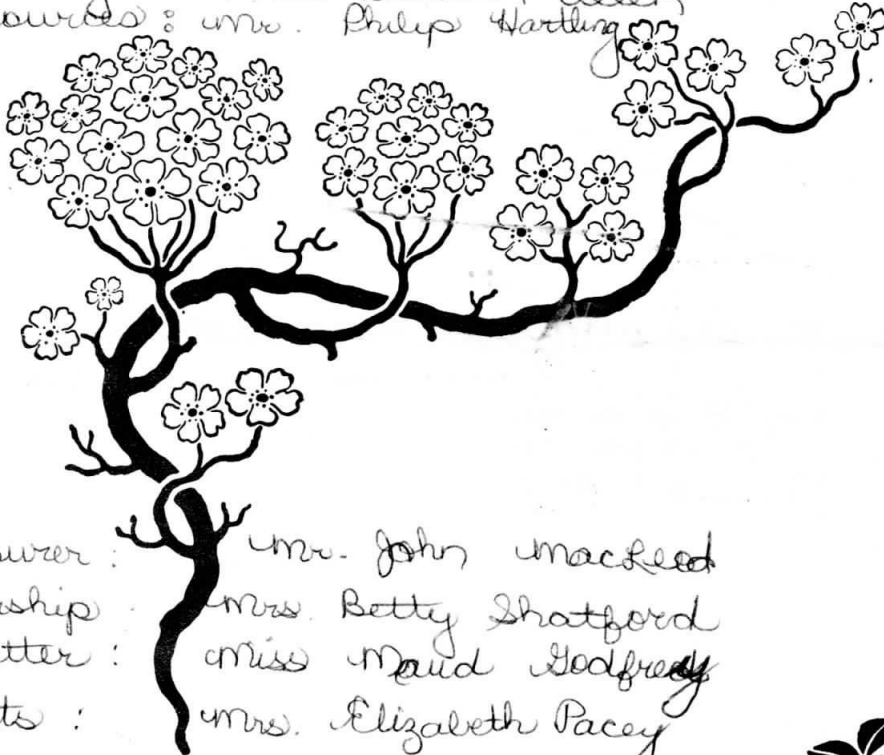 ources : Mr. Philip Hartling
urer : Mr. John MacLeod
rship Mrs. Betty Shatford
tter : Miss Maud Godfrey
ts : Mrs. Elizabeth Pacey